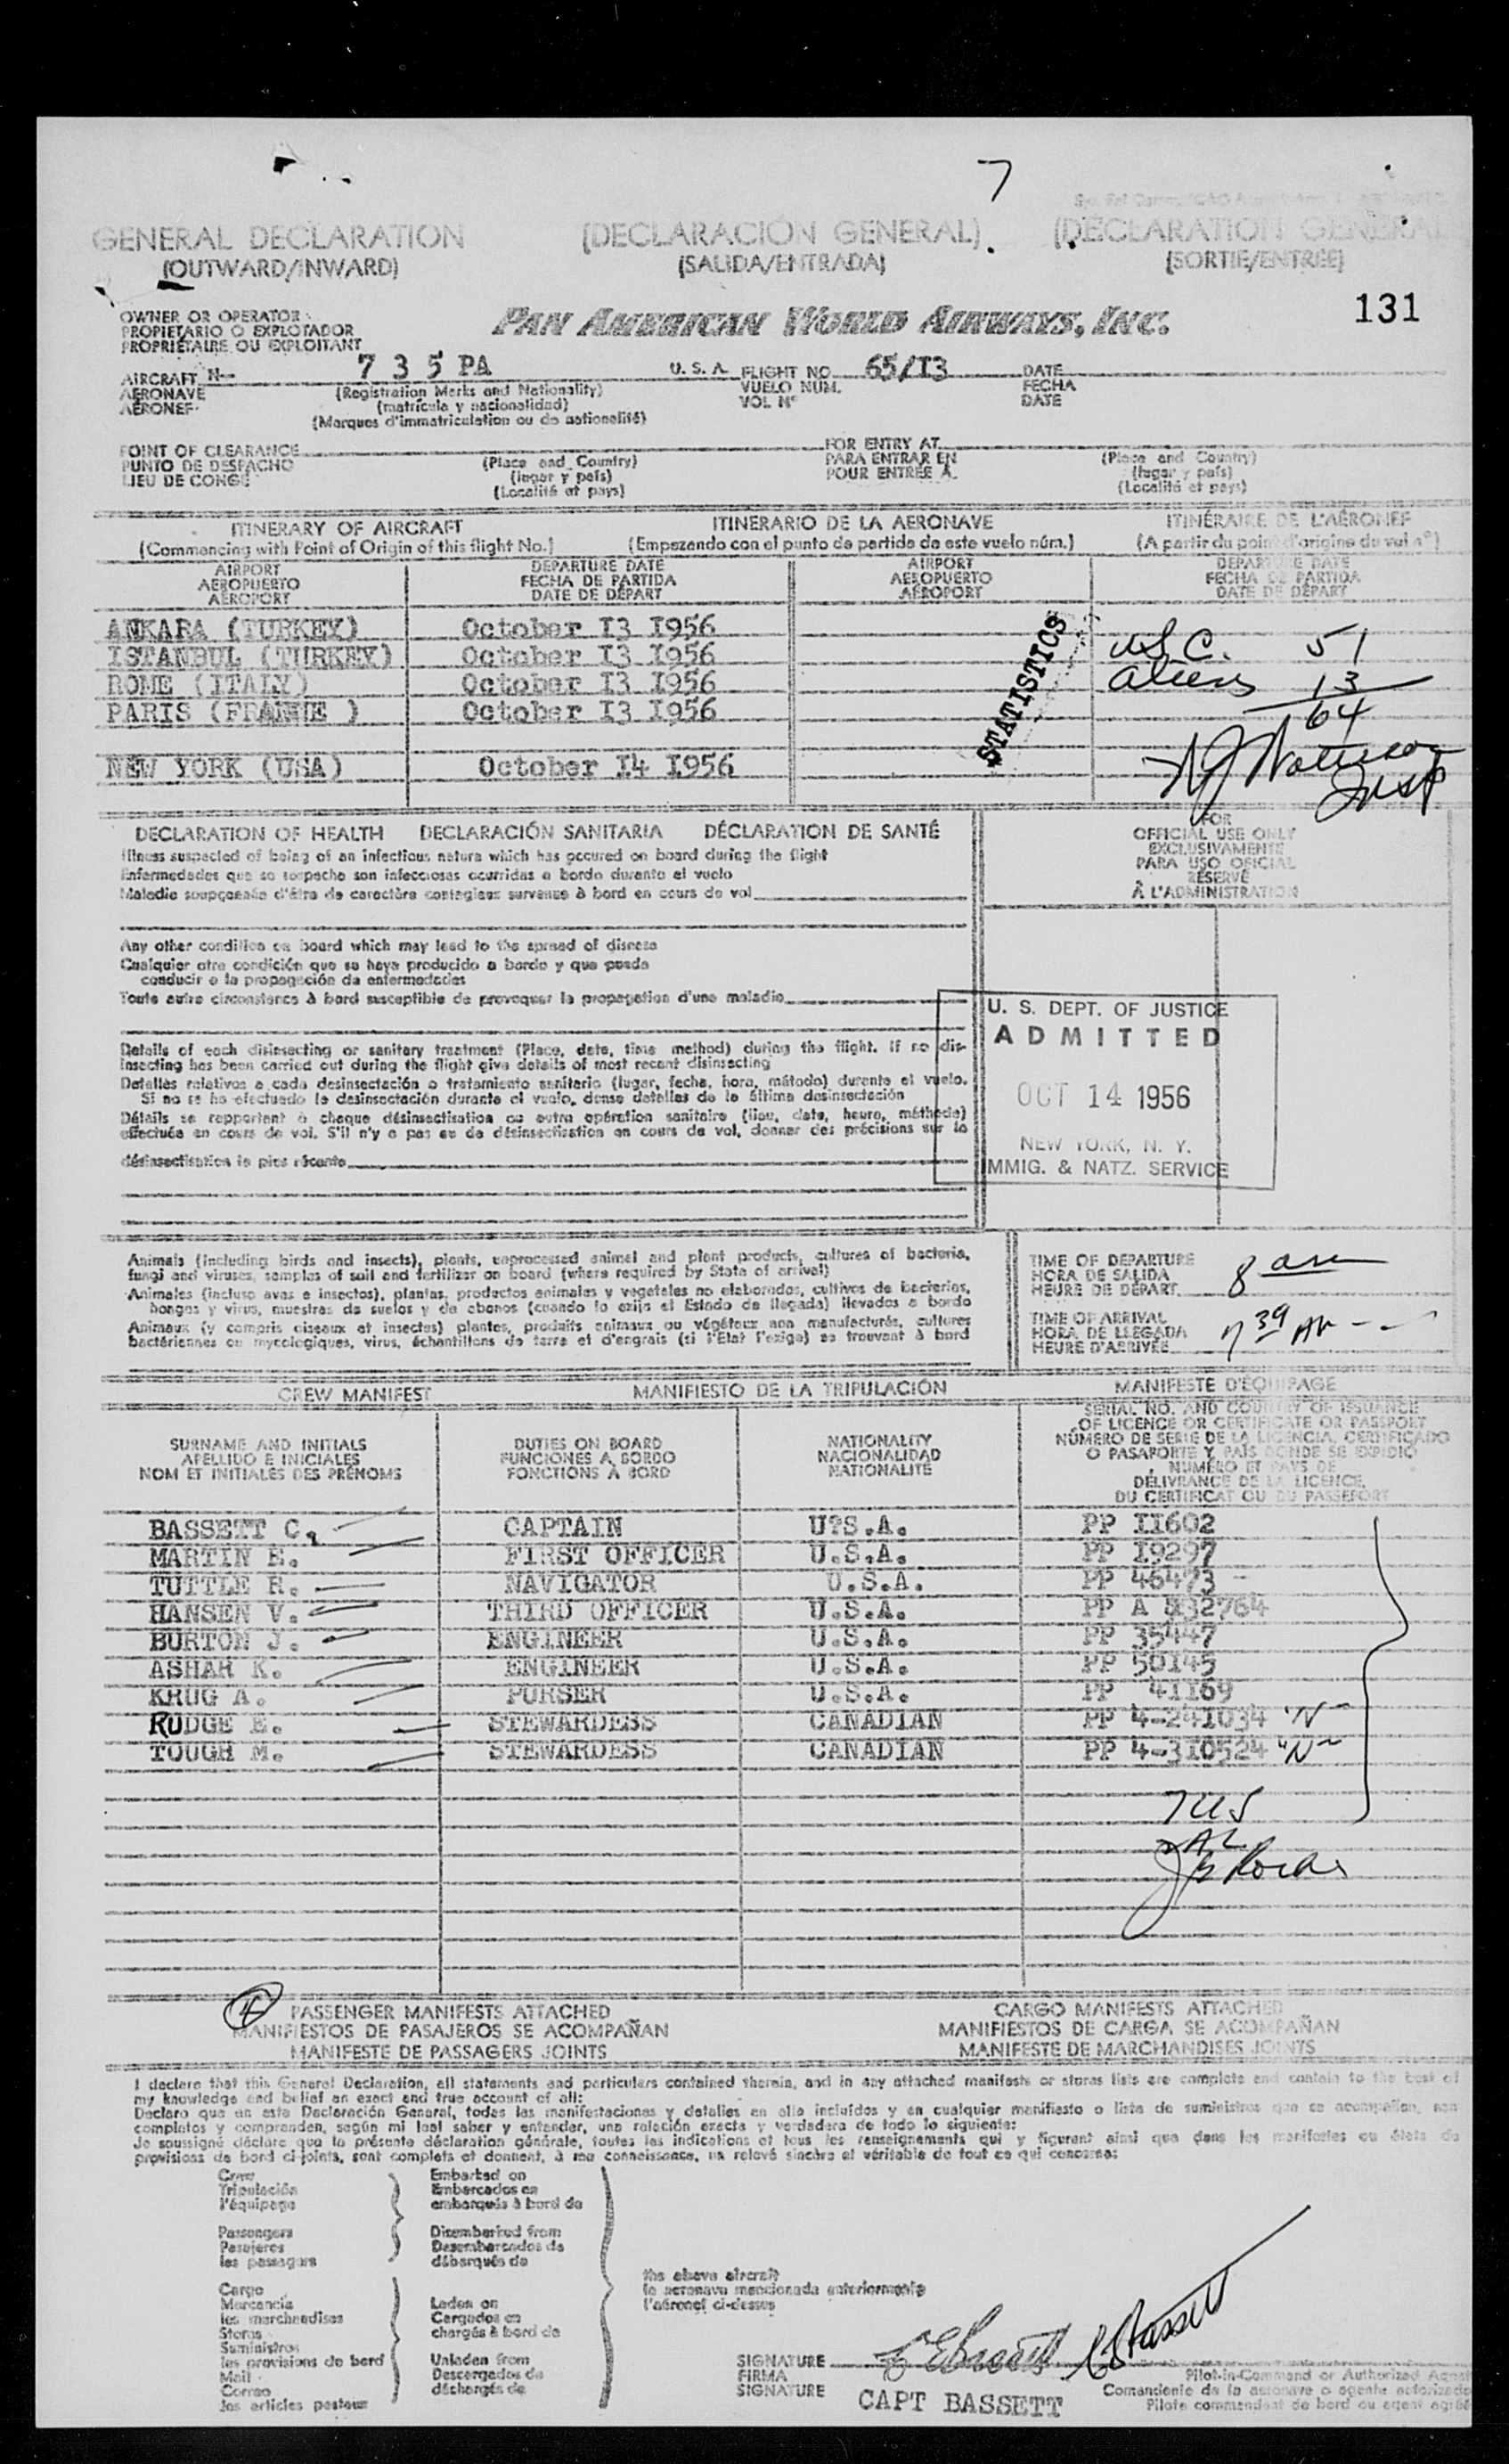 7
GENERAL DECLARATION (DECLARACIÓN GENERAL) (DÉCLARATION GENERAL
(OUTWARD/INWARD) (SALIDA/ENTRADA) (SORTIE/ENTREE)
131
OWNER OR OPERATOR
PROPIETARIO O EXPLOTADOR
PROPRIETAIRE OU EXPLOITANT
PAN AMERICAN WORLD AIRWAYS, INC.
AIRCRAFT N- 7 3 5 PA U. S. A. FLIGHT NO. 65/I3 DATE
AERONAVE (Registration Marks and Nationality) VUELO NUM. FECHA
AÉRONEF (matrícula y nacionalidad) VOL Nº DATE
(Marques d'immatriculation ou de nationalité)
POINT OF CLEARANCE FOR ENTRY AT
PUNTO DE DESPACHO (Place and Country) PARA ENTRAR EN (Place and Country)
LIEU DE CONGÉ (lugar y país) POUR ENTRÉE À (lugar y país)
(Localité et pays) (Localité et pays)
ITINERARY OF AIRCRAFT ITINERARIO DE LA AERONAVE ITINÉRAIRE DE L'AÉRONEF
(Commencing with Point of Origin of this flight No.) (Empezando con el punto de partida de este vuelo núm.) (A partir du point d'origine du vol nº)
AIRPORT DEPARTURE DATE AIRPORT DEPARTURE DATE
AEROPUERTO FECHA DE PARTIDA AEROPUERTO FECHA DE PARTIDA
AÉROPORT DATE DE DÉPART AÉROPORT DATE DE DÉPART
ANKARA (TURKEY) October I3 I956
ISTANBUL (TURKEY) October I3 I956
ROME (ITALY) October I3 I956
PARIS (FRANCE ) October I3 I956
NEW YORK (USA) October I4 I956
STATISTICS
USC. 51
Aliens 13
64
Insp
DECLARATION OF HEALTH DECLARACIÓN SANITARIA DÉCLARATION DE SANTÉ
Illness suspected of being of an infectious nature which has occured on board during the flight
Enfermedades que se sospecha son infecciosas ocurridas a bordo durante el vuelo
Maladie soupçonnée d'être de caractère contagieux survenue à bord en cours de vol
FOR
OFFICIAL USE ONLY
EXCLUSIVAMENTE
PARA USO OFICIAL
RÉSERVÉ
À L'ADMINISTRATION
Any other condition on board which may lead to the spread of disease
Cualquier otra condición que se haya producido a bordo y que pueda
conducir a la propagación de enfermedades
Toute autre circonstance à bord susceptible de provoquer la propagation d'une maladie
Details of each disinsecting or sanitary treatment (Place, date, time method) during the flight. If no dis-
insecting has been carried out during the flight give details of most recent disinsecting
Detalles relativos a cada desinsectación o tratamiento sanitario (lugar, fecha, hora, método) durante el vuelo.
Si no se ha efectuado la desinsectación durante el vuelo, dense detalles de la última desinsectación
Détails se rapportant à chaque désinsectisation ou autre opération sanitaire (lieu, date, heure, méthode)
effectuée en cours de vol. S'il n'y a pas eu de désinsectisation en cours de vol, donner des précisions sur la
désinsectisation la plus récente
U. S. DEPT. OF JUSTICE
ADMITTED
OCT 14 1956
NEW YORK, N. Y.
IMMIG. & NATZ. SERVICE
Animals (including birds and insects), plants, unprocessed animal and plant products, cultures of bacteria,
fungi and viruses, samples of soil and fertilizer on board (where required by State of arrival)
Animales (incluso aves e insectos), plantas, productos animales y vegetales no elaborados, cultivos de bacterias,
hongos y virus, muestras de suelos y de abonos (cuando lo exija el Estado de llegada) llevados a bordo
Animaux (y compris oiseaux et insectes) plantes, produits animaux ou végétaux non manufacturés, cultures
bactériennes ou mycologiques, virus, échantillons de terre et d'engrais (si l'Etat l'exige) se trouvant à bord
TIME OF DEPARTURE
HORA DE SALIDA 8 am
HEURE DE DÉPART
TIME OF ARRIVAL
HORA DE LLEGADA 7 39 AM
HEURE D'ARRIVÉE
CREW MANIFEST MANIFIESTO DE LA TRIPULACIÓN MANIFESTE D'ÉQUIPAGE
SURNAME AND INITIALS DUTIES ON BOARD NATIONALITY
APELLIDO E INICIALES FUNCIONES A BORDO NACIONALIDAD
NOM ET INITIALES DES PRÉNOMS FONCTIONS À BORD NATIONALITÉ
SERIAL NO. AND COUNTRY OF ISSUANCE
OF LICENCE OR CERTIFICATE OR PASSPORT
NÚMERO DE SERIE DE LA LICENCIA, CERTIFICADO
O PASAPORTE Y PAÍS DONDE SE EXPIDIÓ
NUMÉRO ET PAYS DE
DÉLIVRANCE DE LA LICENCE,
DU CERTIFICAT OU DU PASSEPORT
BASSETT C. CAPTAIN U.S.A. PP II602
MARTIN E. FIRST OFFICER U.S.A. PP I9297
TUTTLE R. NAVIGATOR U.S.A. PP 46473
HANSEN V. THIRD OFFICER U.S.A. PP A 832764
BURTON J. ENGINEER U.S.A. PP 35447
ASHAR K. ENGINEER U.S.A. PP 50I45
KRUG A. PURSER U.S.A. PP 4II69
RUDGE E. STEWARDESS CANADIAN PP 4-24I034 "N"
TOUGH M. STEWARDESS CANADIAN PP 4-3I0524 "N"
7US
2AL
4
PASSENGER MANIFESTS ATTACHED CARGO MANIFESTS ATTACHED
MANIFIESTOS DE PASAJEROS SE ACOMPAÑAN MANIFIESTOS DE CARGA SE ACOMPAÑAN
MANIFESTE DE PASSAGERS JOINTS MANIFESTE DE MARCHANDISES JOINTS
I declare that this General Declaration, all statements and particulars contained therein, and in any attached manifests or stores lists are complete and contain to the best of
my knowledge and belief an exact and true account of all:
Declaro que en esta Declaración General, todas las manifestaciones y detalles en ella incluídos y en cualquier manifiesto o lista de suministros que se acompañan, son
completos y comprenden, según mi leal saber y entender, una relación exacta y verdadera de todo lo siguiente:
Je soussigné déclare que la présente déclaration générale, toutes les indications et tous les renseignements qui y figurent ainsi que dans les manifestes ou états de
provisions de bord ci-joints, sont complets et donnent, à ma connaissance, un relevé sincère et véritable de tout ce qui concerne:
Crew Embarked on
Tripulación Embarcados en
l'équipage embarqués à bord de
Passengers Disembarked from
Pasajeros Desembarcados de
les passagers débarqués de
the above aircraft
la aeronave mencionada anteriormente
l'aéronef ci-dessus
Cargo
Mercancía Laden on
les marchandises Cargados en
Stores chargés à bord de
Suministros
les provisions de bord Unladen from
Mail Descargados de
Correo déchargés de
les articles postaux
SIGNATURE
FIRMA
SIGNATURE
CEBassett CEBassett
CAPT BASSETT
Pilot-in-Command or Authorized Agent
Comandante de la aeronave o agente autorizado
Pilote commandant de bord ou agent agréé